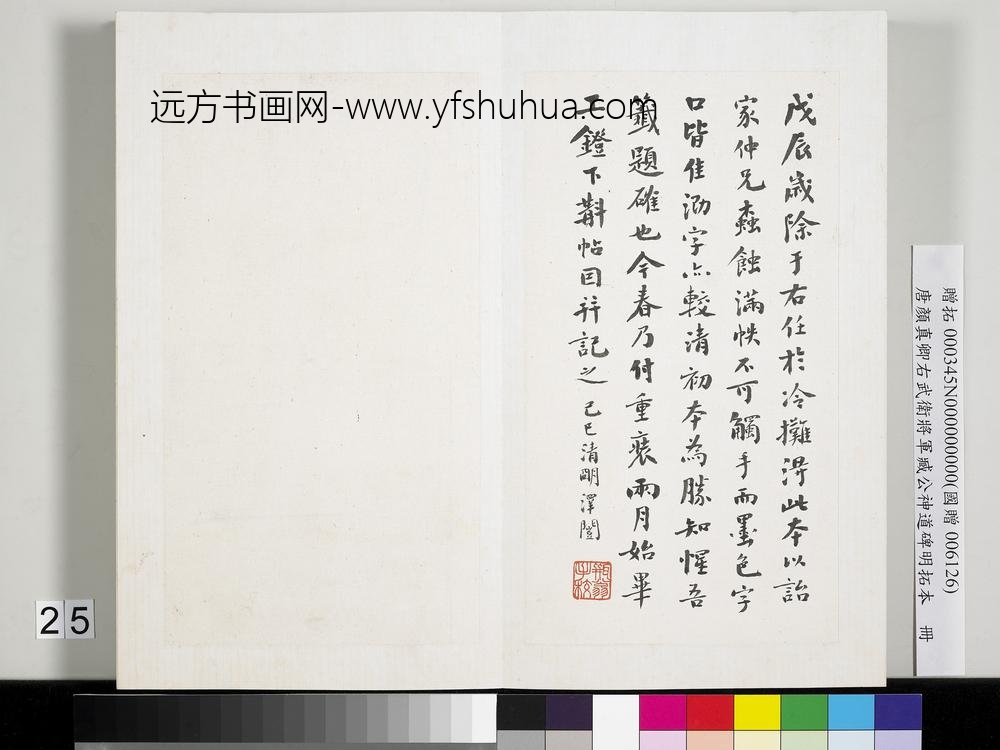 远方书画网-www.yfshuhua.com
戊辰歲除于右任於冷攤得此本以詒
家仲兄蟲蝕滿帙不可觸手而墨色字
口皆佳泐字亦較清初本為勝知惺吾
籤題確也今春乃付重裝兩月始畢
工鐙下斠帖因并記之 己巳清明澤闓
贈拓 000345N000000000(國贈 006126)
唐顏真卿右武衛將軍臧公神道碑明拓本 冊
25